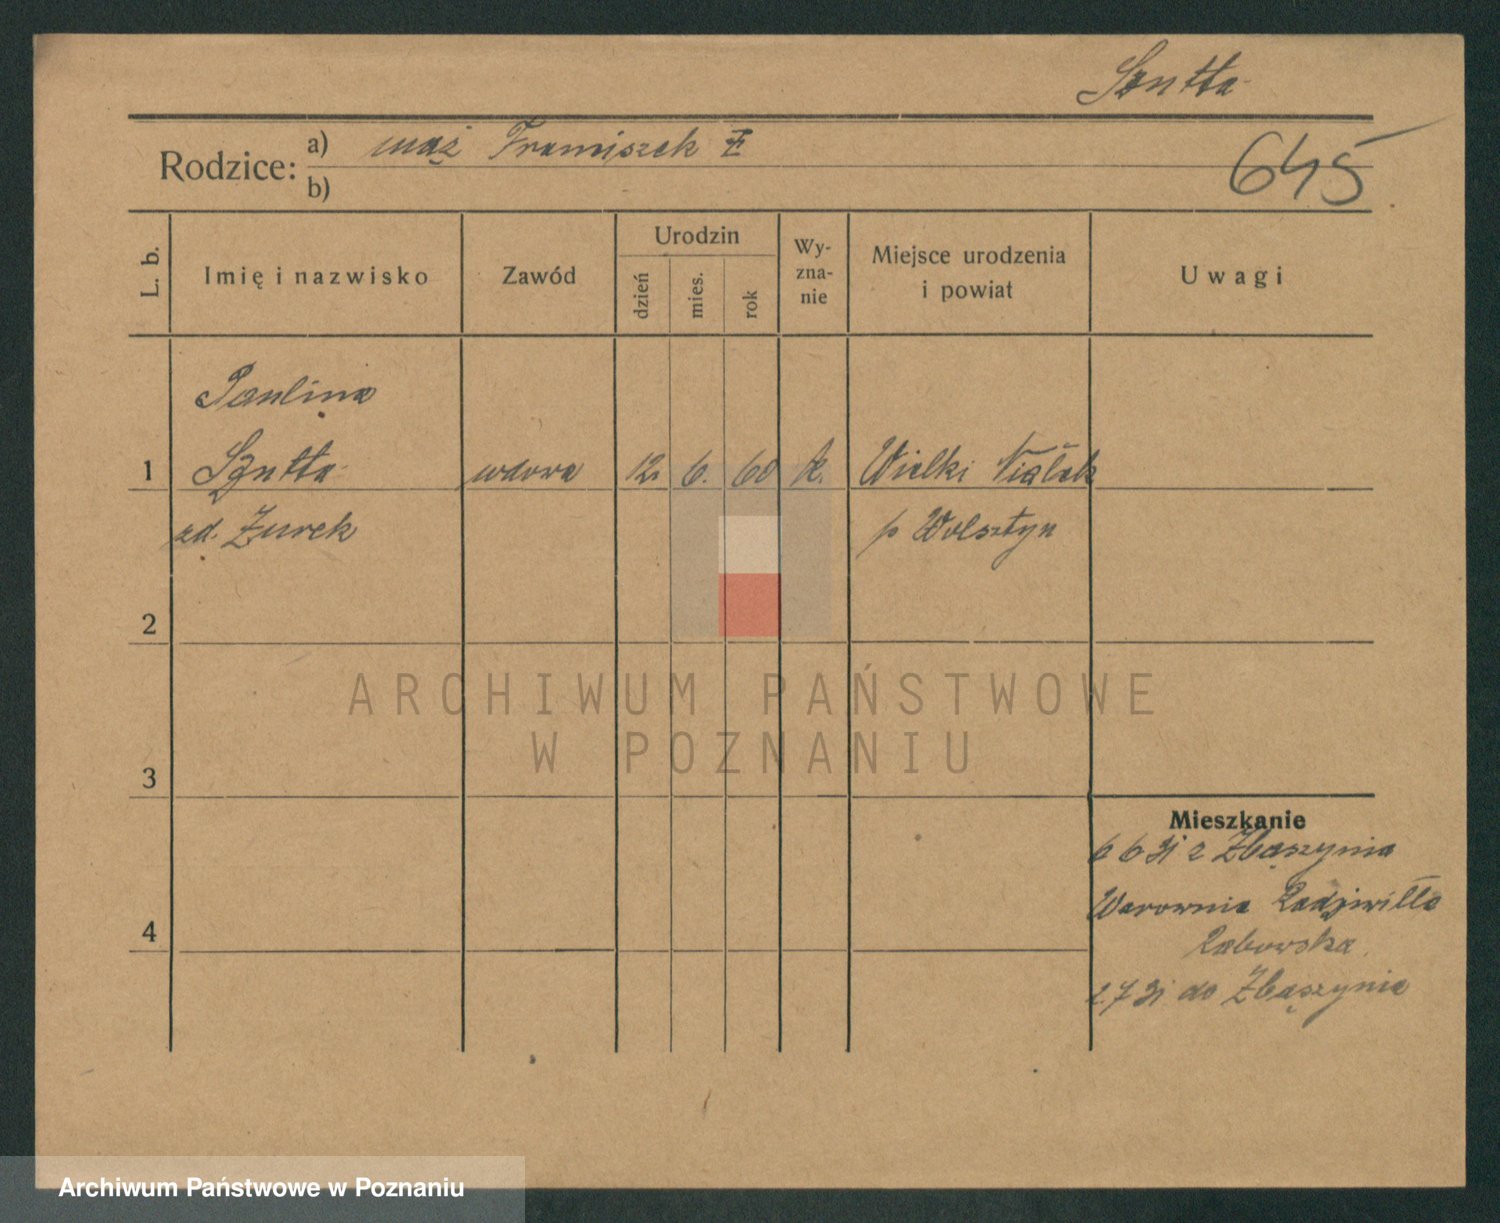 Szutta
Rodzice: a) mąż Franciszek
b)
645
L. b.
Imię i nazwisko
Zawód
Urodzin
dzień
mies.
rok
Wy-
zna-
nie
Miejsce urodzenia
i powiat
Uwagi
Paulina
1 Szutta wdowa 12. 6. 60 k. Wielki
zd. Żurek p Wolsztyn
2
3
4
Mieszkanie
6 31 z Zbąszynia
Radziwiłła
Rabowska
2 7 31 do Zbąszynia
ARCHIWUM PAŃSTWOWE
W POZNANIU
Archiwum Państwowe w Poznaniu